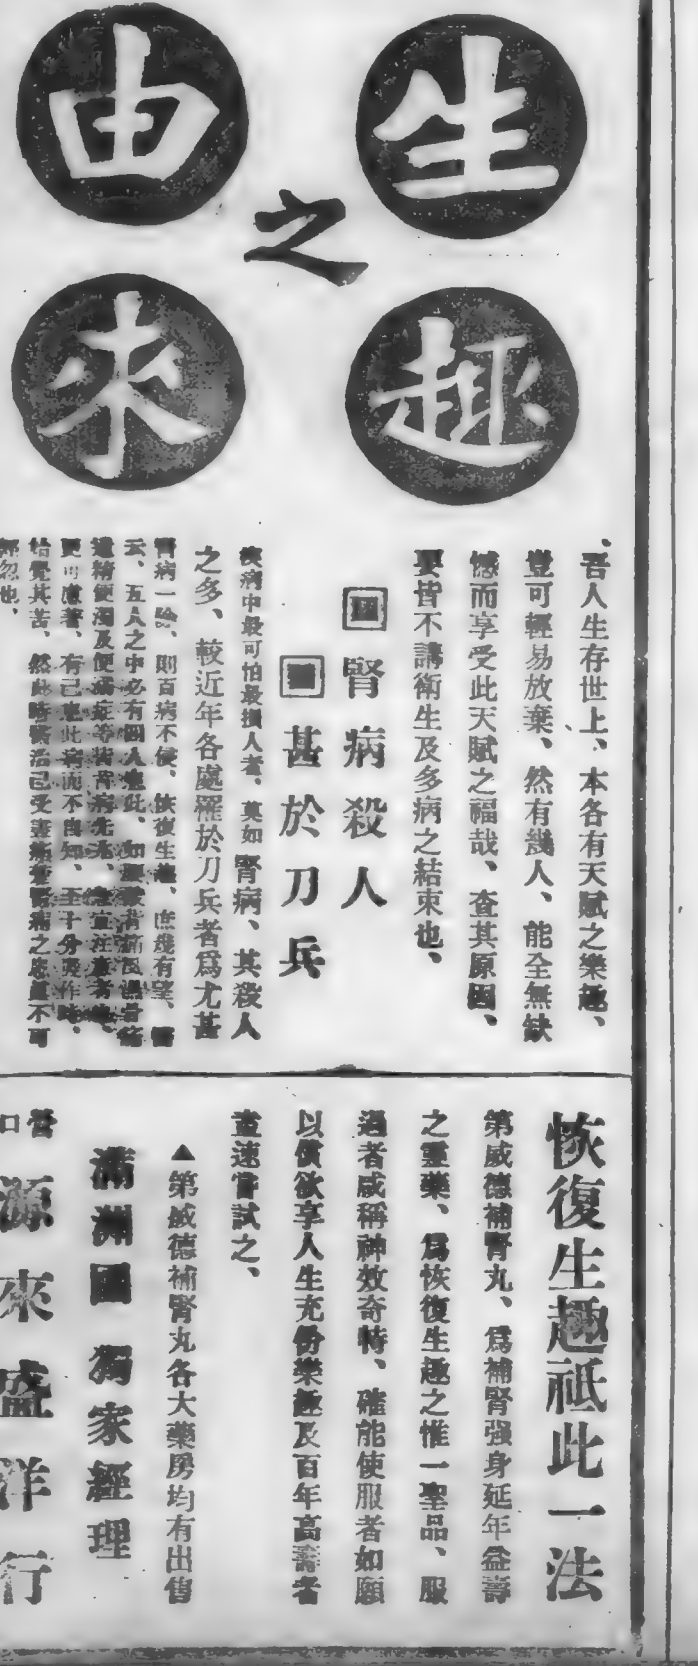 生趣
之
由來
吾人生存世上、本各有天賦之樂趣、
豈可輕易放棄、然有幾人、能全無缺
憾而享受此天賦之福哉、查其原因、
要皆不講衛生及多病之結束也、
腎病殺人
甚於刀兵
疾病中最可怕最損人者、莫如腎病、其殺人
之多、較近年各處罹於刀兵者爲尤甚
腎病一除、則百病不侵、恢復生趣、庶幾有望、
云、五人之中必有四人患此、如腰酸背痛
遺精便濁及便
更可慮者、有已患此病而不自知、至十分發作時、
始覺其苦、然此時腎已受盡病之不可
輕忽也、
恢復生趣祗此一法
第威德補腎丸、爲補腎强身延年益壽
之靈藥、爲恢復生趣之惟一聖品、服
過者咸稱神效奇特、確能使服者如願
以償欲享人生充份樂趣及百年高壽者
盍速嘗試之、
▲第威德補腎丸各大藥房均有出售
滿洲國 獨家經理
營口 源來盛洋行